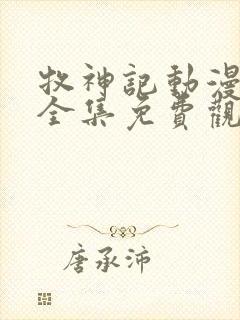 牧神記動漫
全集免費觀
唐承沛